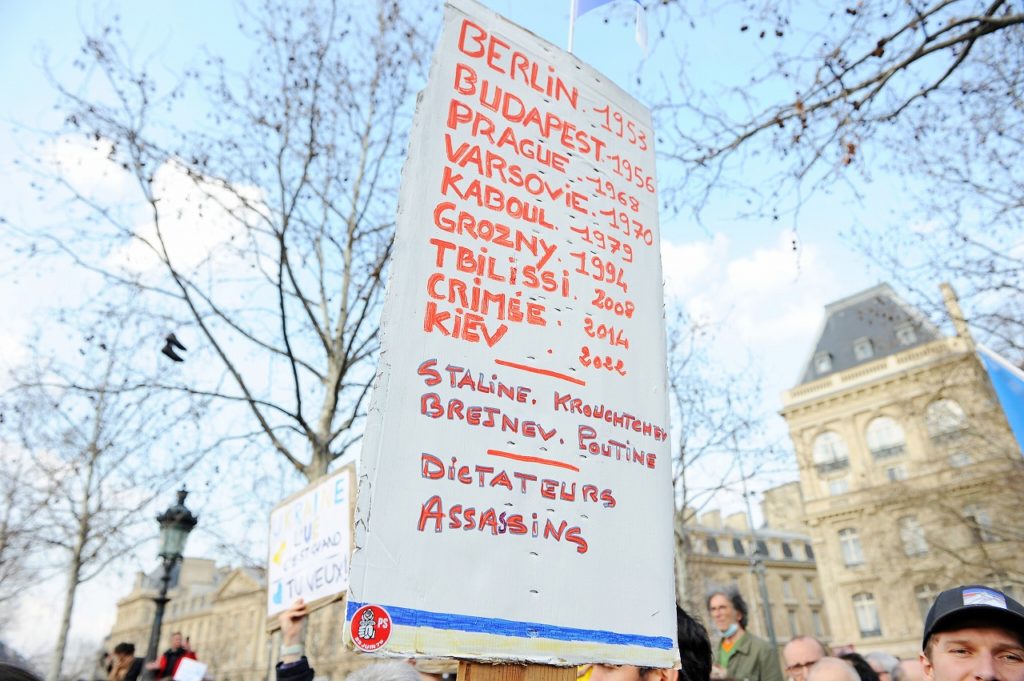 BERLIN. 1953
BUDAPEST. 1956
PRAGUE. 1968
VARSOVIE. 1970
KABOUL. 1979
GROZNY. 1994
TBILISSI. 2008
CRIMÉE. 2014
KIEV. 2022
STALINE. KROUCHTCHEV
BREJNEV. POUTINE
DICTATEURS
ASSASSINS
PS
UKRAINE
L'UE
C'EST QUAND
TU VEUX!